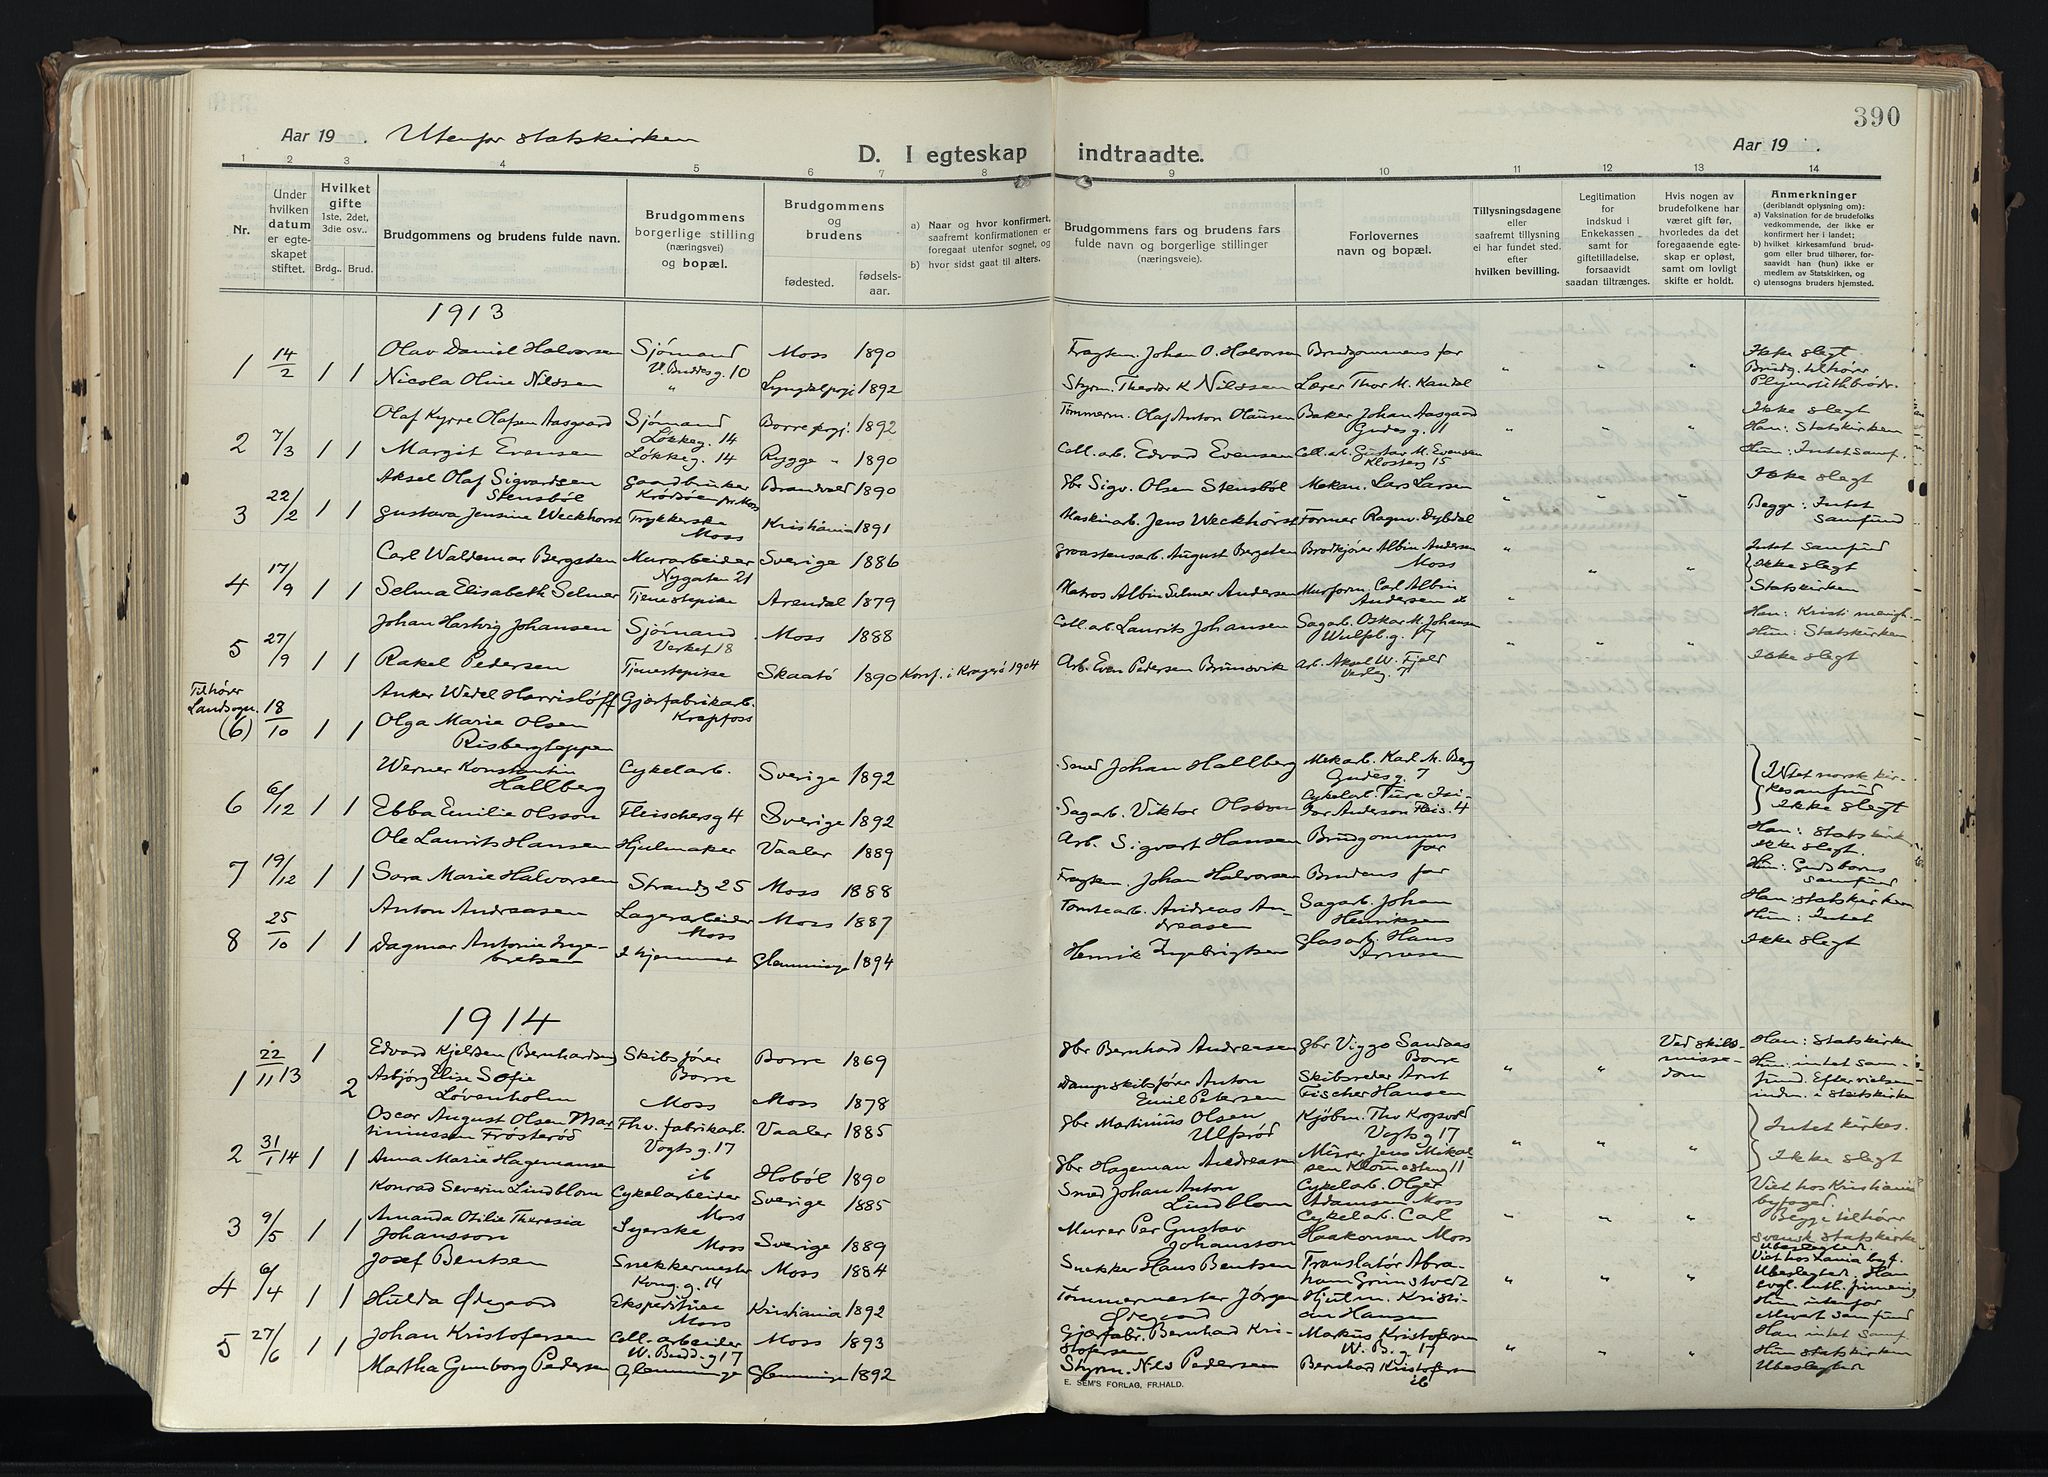 390
Aar 19 . Utenfor statskirken
Aar 19 .
D. I egteskap indtraadte.
1 2 3 4 5 6 7 8 9 10 11 12 13 14
Nr.
Under hvilken datum er egteskapet stiftet.
Hvilket gifte 1ste, 2det, 3die osv..
Brdg.. Brud.
Brudgommens og brudens fulde navn.
Brudgommens borgerlige stilling (næringsvei) og bopæl.
Brudgommens og brudens
fødested. fødsels-aar.
a) Naar og hvor konfirmert, saafremt konfirmationen er foregaaet utenfor sognet, og
b) hvor sidst gaat til alters.
Brudgommens fars og brudens fars fulde navn og borgerlige stillinger (næringsveie).
Forlovernes navn og bopæl.
Tillysningsdagene eller saafremt tillysning ei har fundet sted. efter hvilken bevilling.
Legitimation for indskud i Enkekassen samt for giftetilladelse, forsaavidt saadan tiltrænges.
Hvis nogen av brudefolkene har været gift før, hvorledes da det foregaaende egteskap er opløst, samt om lovligt skifte er holdt.
Anmerkninger (deriblandt oplysning om):
a) Vaksination for de brudefolks vedkommende, der ikke er konfirmert her i landet;
b) hvilket kirkesamfund brudgom eller brud tilhører, forsaavidt han (hun) ikke er medlem av Statskirken, og
c) utensogns bruders hjemsted.
1913
1 14/2 1 1 Olav Daniel Halvorsen Sjømand V. Buddesg. 10 Moss 1890 Fragtem. Johan O. Halvorsen Brudgommens far Ikke slegt
Nicola Oline Nilssen " Lyngdal prgj. 1892 Styrm. Theodor K Nilssen Lærer Thor M. Kandal " " " Brudg. tilhører Plymouthbrødr.
2 7/3 1 1 Olaf Kyrre Olafsen Aasgaard Sjømand Løkkeg. 14 Borre prgj. 1892 Tømmerm. Olaf Anton Olausen Baker Johan Aasgaard Gudesg. 11 Ikke slegt
Margit Evensen Løkkeg. 14 Rygge " 1890 Cell. arb. Edvard Evensen Cell. arb. Gustav M. Evensen Klosterg 15 " " " Han: Statskirken Hun: Intet samf.
3 22/2 1 1 Aksel Olaf Sigvardsen Stensböl gaardbruker Krödsöen pr. Moss Brandval 1890 gbr Sigv. Olsen Stensböl Mekan. Lars Larsen Ikke slegt
Gustava Jensine Weckhorst Trykkerske Moss Kristiania 1891 Maskinarb. Jens Weckhorst Former Ragnv. Dybdal " " " Begge: Intet samfund
4 17/9 1 1 Carl Waldemar Bergsten Murarbeider Nygaten 21 Sverige 1886 Graastensarb. August Bergsten Brödkjører Albin Andersen Moss " " " Intet samfund Ikke slegt
Selma Elisabeth Selmer Tjenestepike Arendal 1879 Matros Albin Selmer Andersen Murform. Carl Albin Andersen ib " Statskirken
5 27/9 1 1 Johan Hartvig Johansen Sjømand Verket 18 Moss 1888 Cell. arb. Laurits Johansen Sagarb. Oskar M. Johansen Wulfsb. g. 17 Han: Kristi menigh. Hun: Statskirken
Rakel Pedersen Tjenestepike Skaatö 1890 Konf. i Kragerö 1904 Arb. Even Pedersen Brunsvik arb. Aksel W. Fjeld " " " Ikke slegt
Tilhører Landsogn.
(6) 18/10 1 1 Anker Wedel Harrislöff Gjærfabrikarb. Krapfoss
Olga Marie Olsen Risbergtoppen
6 6/12 1 1 Werner Konstantin Hallberg Cykelarb. Sverige 1892 Smed Johan Hallberg Mekarb. Karl M. Berg Gudesg. 7 Intet norsk kirkesamfund
Ebba Emilie Olsson Fleischersg 4 Sverige 1892 Sagarb. Viktor Olsson Cykelarb. Ture Isidor Anderson Fleis. 4 Ikke slegt
7 19/12 1 1 Ole Laurits Hansen Hjulmaker Vaaler 1889 Arb. Sigvart Hansen Brudgommens far Han: Statskirk. ikke slegt.
Sara Marie Halvorsen Strandg 25 Moss 1888 Fragtem. Johan Halvorsen Brudens far Hun: Guds borns samfund
8 25/10 1 1 Anton Andreasen Lagerarbeider Moss Moss 1887 Tomtearb. Andreas Andreasen Sagarb. Johan Henriksen Han: Statskirken Hun: Intet
Dagmar Antonie Ingebretsen I hjemmet Glemminge 1894 Henrik Ingebrigtsen Glasarb. Hans Arnesen Ikke slegt
1914
1 22/11 13 1 Edvard Kjelsen (Bernhardsen) Skibsfører Borre Borre 1869 Gbr Bernhard Andreasen Gbr Viggo Sandaas Borre Ved skilsmissedom Han: Statskirken
2 Asbjørg Elise Sofie Løvenholm Moss Moss 1878 Dampskibsfører Anton Emil Petersen Skibsreder Arnt Fischer Hansen " " Hun: intet samfund. Efter vielsen indm. i Statskirken
2 31/1 14 1 1 Oscar August Olsen Martiniussen Frösteröd Thv. fabrikarb. Vogtsg. 17 Vaaler 1885 Gbr Martinius Olsen Ulfsröd Kjøbm. Thv Krogsvold Vogtsg 17 " " " Intet kirkes.
Anna Marie Hagemansen ib Hoböl 1890 Gbr Hageman Andreasen Murer Jens Mikalsen Ikke slegt
3 9/5 1 1 Konrad Severin Lindblom Cykelarbeider Moss Sverige 1885 Smed Johan Anton Lindblom Cykelarb. Olger Adamsen Moss Viet hos Kristiania byfoged.
Amanda Otilie Theresia Johansson Syerske Moss Sverige 1889 Murer Per Gustav Johansson Cykelarb. Carl Haakonsen Moss " " " Begge tilhører svensk statskirke Ubeslegtet.
4 6/4 1 1 Josef Bentsen Snekkermester Kong. g. 14 Moss 1884 Snekker Hans Bentsen Translatør Abraham Grimstvedt " " " Viet hos Xania byf. Ubeslegtet. Han evgl. luth. frimenig
Hulda Ødegaard Ekspeditrice Moss Kristiania 1892 Tömmermester Jörgen Ødegaard Hjulm. Kristian Hansen Hun utenfor ethvert samfund
5 27/6 1 1 Johan Kristofersen Cell. arbeider W. Budd. g 17 Moss 1893 Gjærfabr. Bernhard Kristofersen Markus Kristofersen W. B. g. 17 " " " Han intet samf. Hun statskirken
Martha Gunborg Pedersen Glemminge Glemminge 1892 Styrm. Nils Pedersen Bernhard Kristofersen ib Ubeslegtet
E. SEM'S FORLAG, FR.HALD.